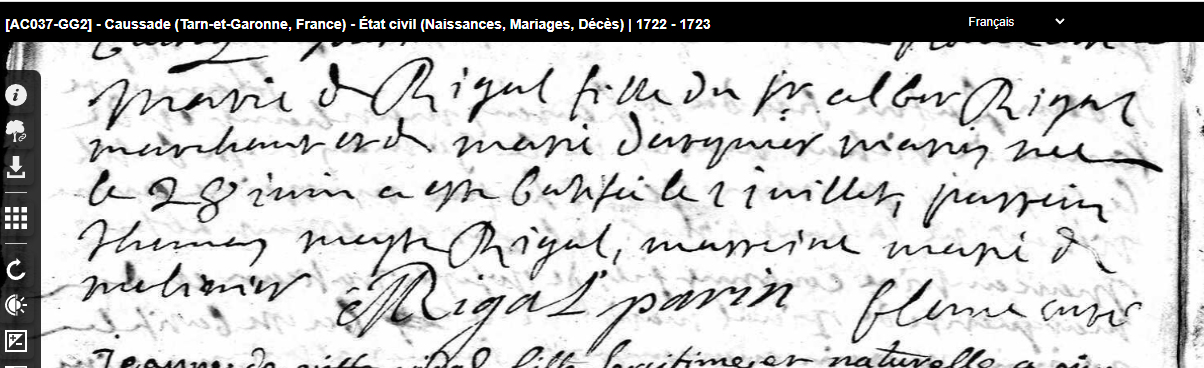 [AC037-GG2] - Caussade (Tarn-et-Garonne, France) - État civil (Naissances, Mariages, Décès) | 1722 - 1723
Français
marie de Rigal fille du sr albert Rigal
marchant et de marie darquier mariés nee
le 28 iuin a este batisée le 2 iuillet, parrein
Thomas Rigal, marreine marie de
molinier Rigal parin curé
Jeanne de fille legitime et naturelle a